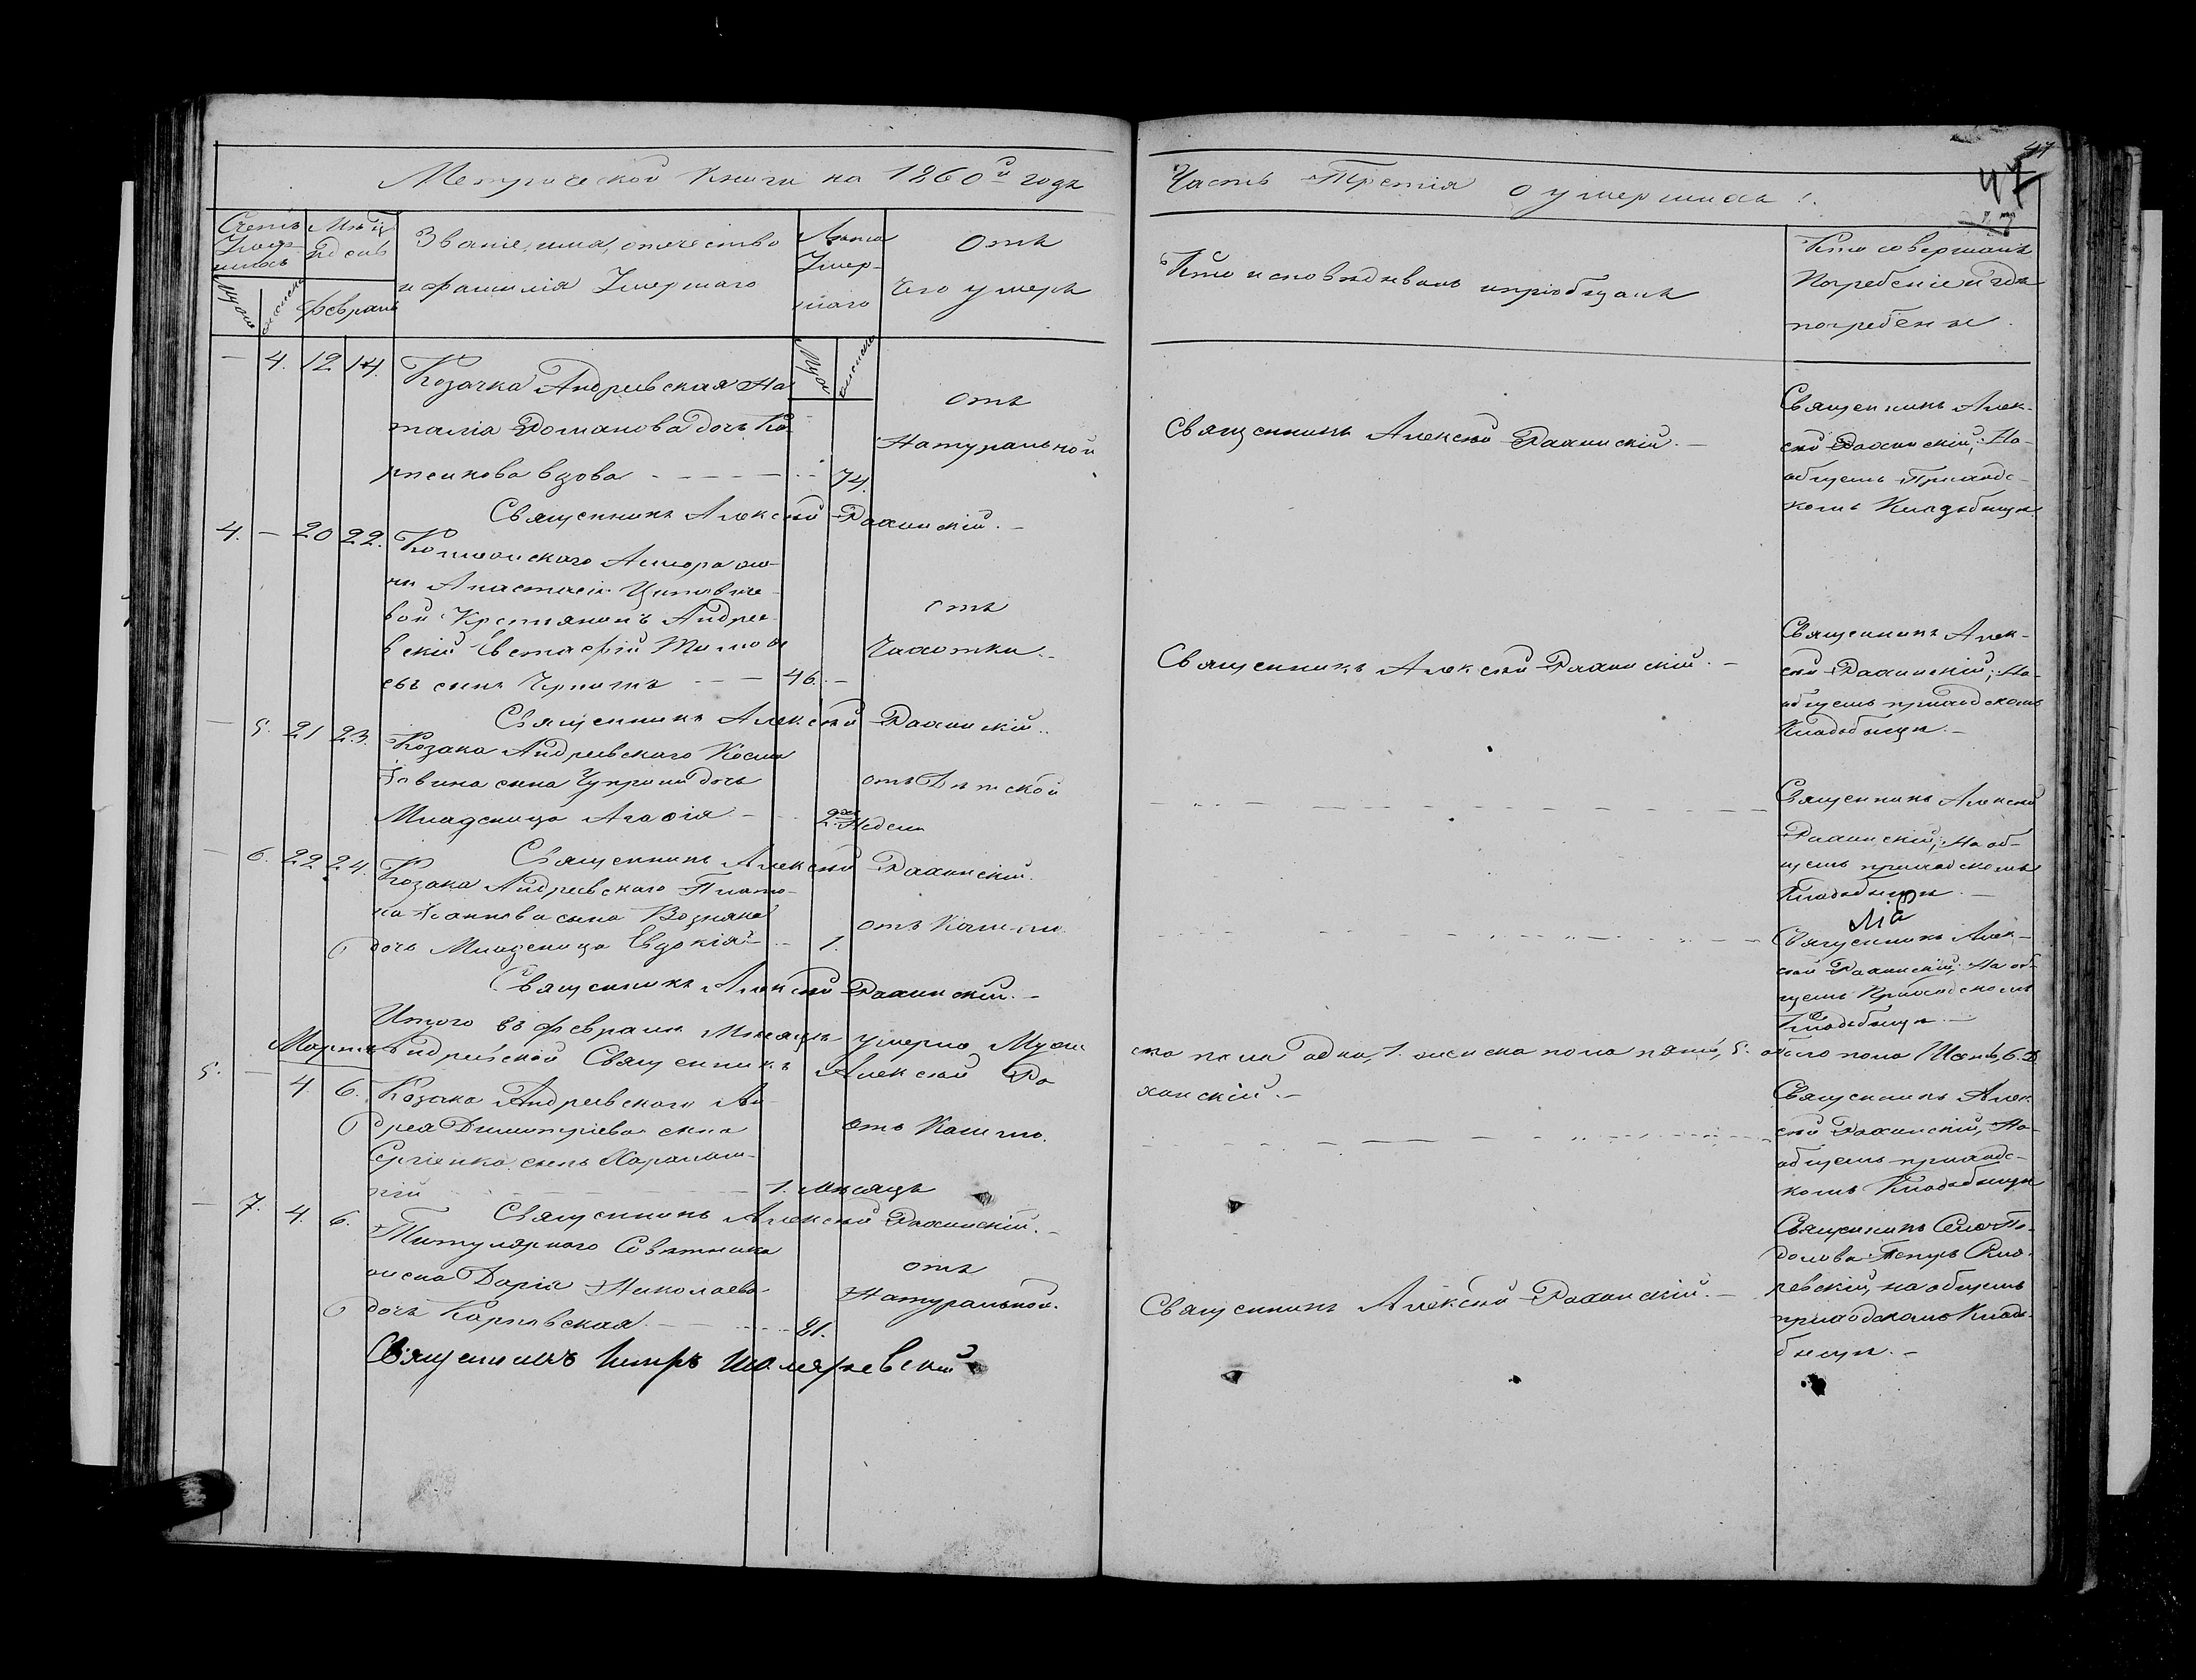 Метрической Книги на 1860й годъ
Часть Третія о умершихъ.
47
47
Счетъ Умер-шихъ
Мѣсяц День
Февраль
Званіе, имя, отечество
и фамилія Умершаго
Лѣта
Умер-
шаго
Отъ
Чего умеръ
Кто исповѣдывалъ и пріобщалъ
Кто совершалъ
Погребеніе и гдѣ
погребены.
— 4. 12 14.
Козачка Андреевская На
талія Романова дочь
вдова - - - - 74.
отъ
Натуральной
Священникъ Алексѣй Раханскій. —
Священникъ Алек-
сѣй Раханскій; На-
общемъ Приходс-
комъ Кладбищѣ.
Священникъ Алексѣй Раханскій. —
4. — 20 22.
Коллежскаго Асессора же-
ны Анастасіи
вой Крестьянинъ Андрее-
вскій Евстафій
евъ сынъ - - - 46. —
отъ
Чахотки. -
Священникъ Алексѣй Раханскій. —
Священникъ Алек-
сѣй Раханскій; На-
общемъ приходскомъ
Кладбищѣ. —
Священникъ Алексѣй Раханскій. -
— 5. 21 23.
Козака Андреевскаго Космы
сына дочь
Младеница Агафія - - 2 Недели
отъ Дѣтской
Священникъ Алексѣй
Раханскій; На об-
щемъ приходскомъ
Кладбищѣ. —
Священникъ Алексѣй Раханскій.
— 6. 22 24.
Козака Андреевскаго Плато-
на сына Возняка
дочь Младеница Евдокія - - 1.
отъ Кашлю
Священникъ Алек-
сѣй Раханскій; На об-
щемъ Приходскомъ
Кладбищѣ. —
Священникъ Алексѣй Раханскій. —
Итого въ февралѣ Мѣсяцѣ умерло Муже
ска пола одна, 1. женска пола пять, 5. обоего пола Шесть, 6. Д.
Андреевской Священникъ Алексѣй Ра
ханскій. —
Мартъ
5. — 4 6.
Козака Андреевскаго Ан-
дрея Димитріева сына
Сергіенка сынъ Харалам-
пій - - - 1. Мѣсяцъ
отъ Кашлю.
Священникъ Алек-
сѣй Раханскій, На-
общемъ приходс-
комъ Кладбищѣ
Священникъ Алексѣй Раханскій. —
— 7. 4. 6.
Титулярнаго Совѣтника
жена Дарія Николаева
дочь Карповская - - - 21.
отъ
Натуральной.
Священникъ Алексѣй Раханскій. —
Священникъ Села По-
долова Петръ
ревскій, на общемъ
приходскомъ Клад-
бищѣ. —
Священникъ Петръ